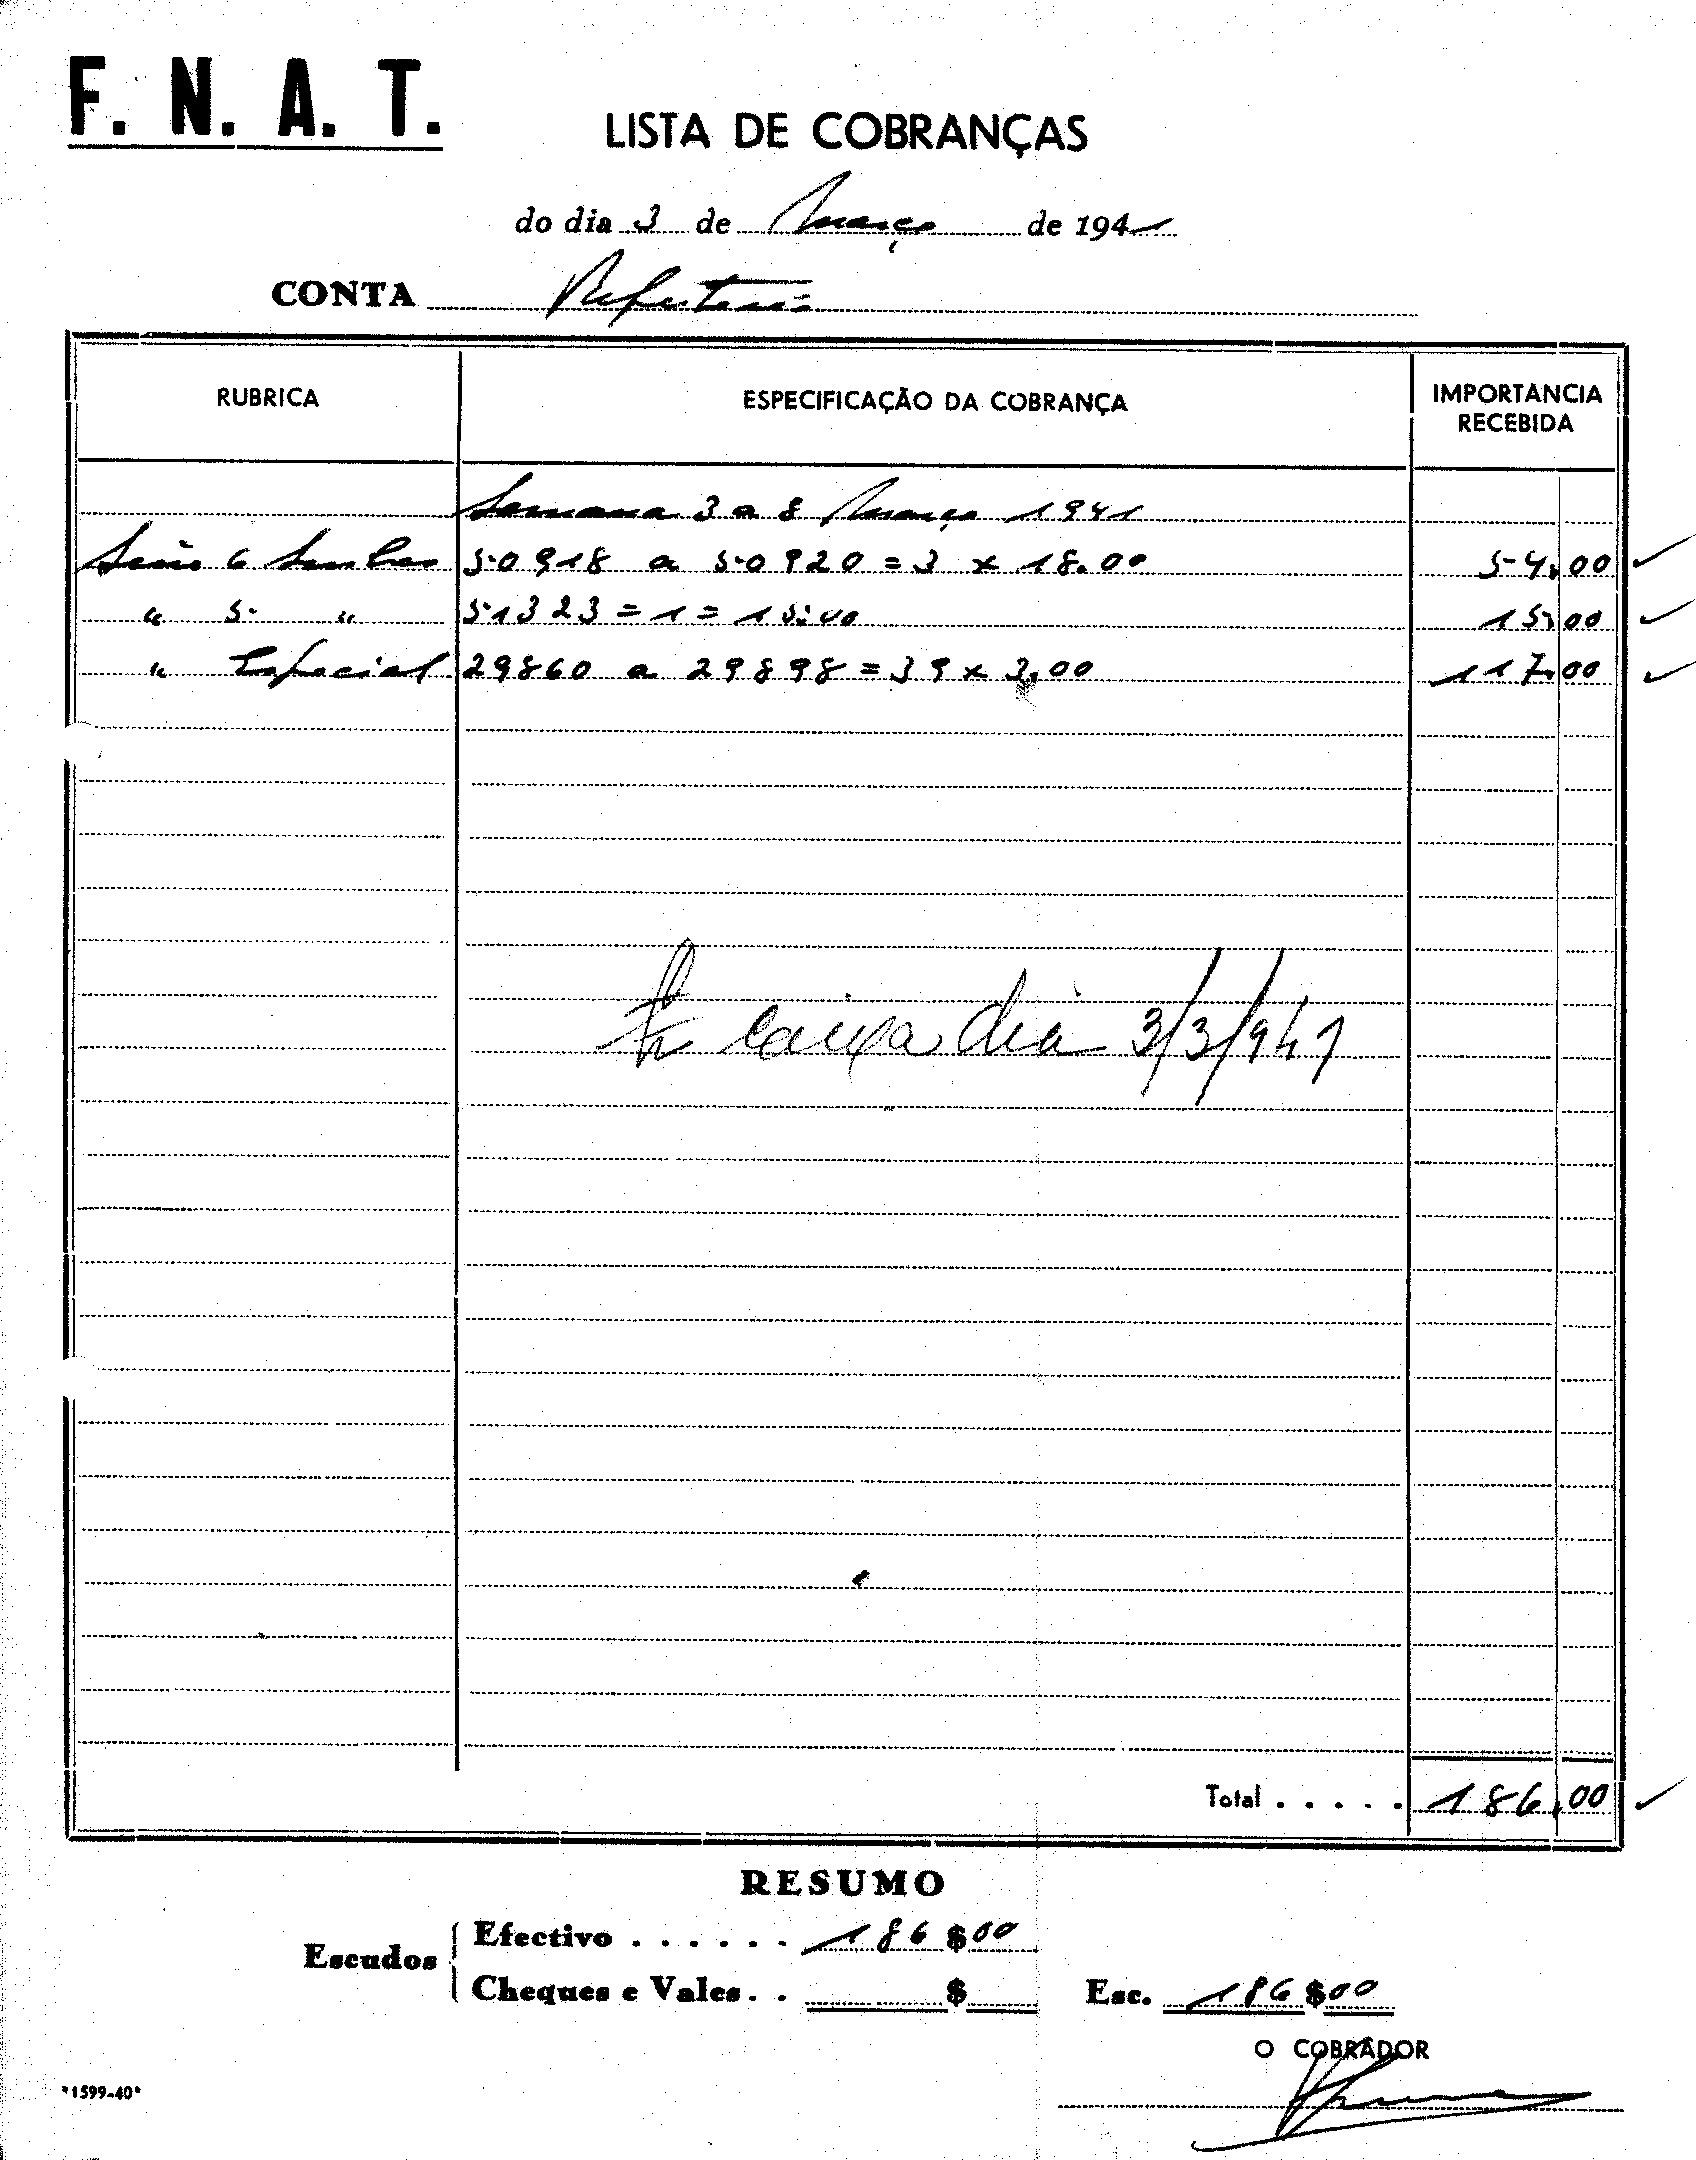 F. N. A. T.
LISTA DE COBRANÇAS
do dia 3 de Março de 1941
CONTA Refeitorio
RUBRICA ESPECIFICAÇÃO DA COBRANÇA IMPORTANCIA RECEBIDA
Semana 3 a 8 Março 1941
Série 6 Senhas 50918 a 50920 = 3 x 18.00 54,00
" 5 " 51323 = 1 = 15.00 15,00
" Especial 29860 a 29898 = 39 x 3,00 117,00
caixa dia 3/3/941
Total . . . . . 186,00
RESUMO
Escudos
Efectivo . . . . . . 186$00
Cheques e Vales. . $
Esc. 186$00
O COBRADOR
"1599-40"